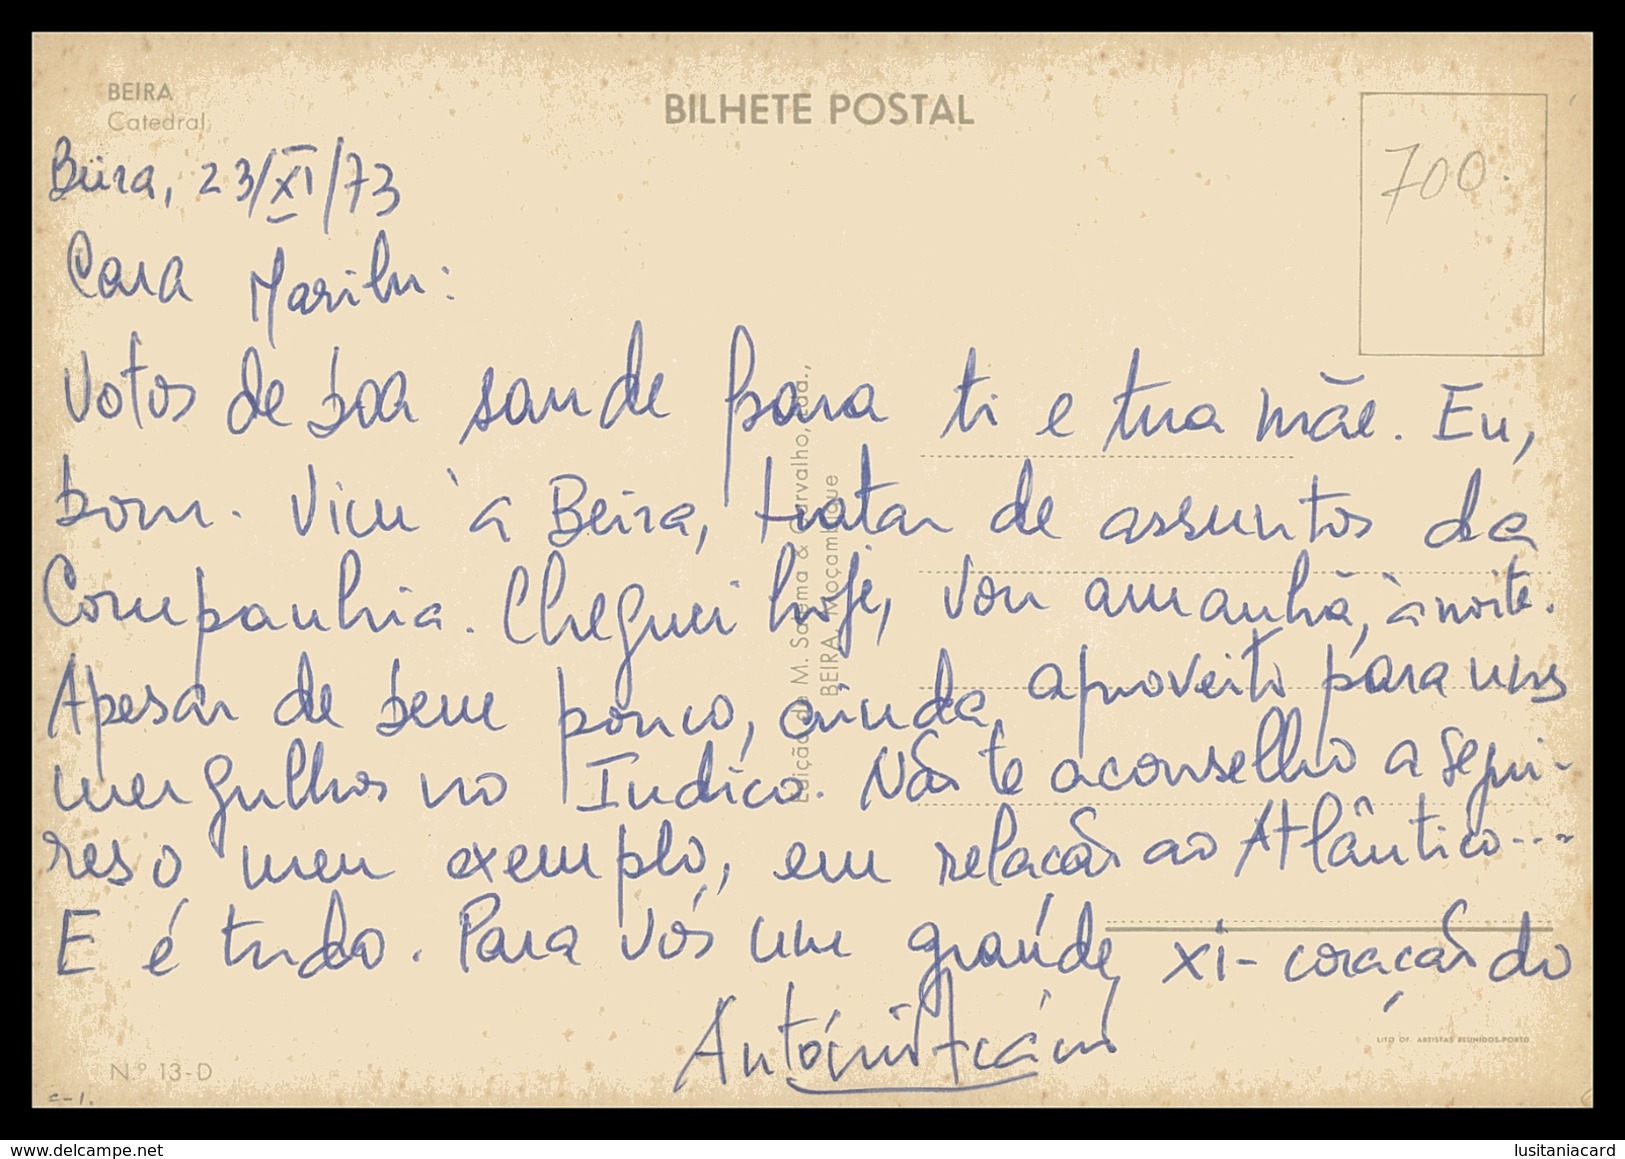 BEIRA
Catedral
BILHETE POSTAL
700.
Beira, 23/XI/73
Cara Marilu:
Votos de boa saude para ti e tua mãe. Eu,
bom. Vim à Beira, tratar de assuntos da
Companhia. Cheguei hoje, vou amanhã, à noite.
Apesar de bem pouco, ainda aproveito para uns
mergulhos no Índico. Não te aconselho a segui-
res o meu exemplo, em relação ao Atlântico...
E é tudo. Para vós um grande xi-coração do
António
Edição de M. Salema & Carvalho, Lda.,
BEIRA, Moçambique
N.º 13-D
LITO OF. ARTISTAS REUNIDOS-PORTO
c-1.
www.delcampe.net
lusitaniacard